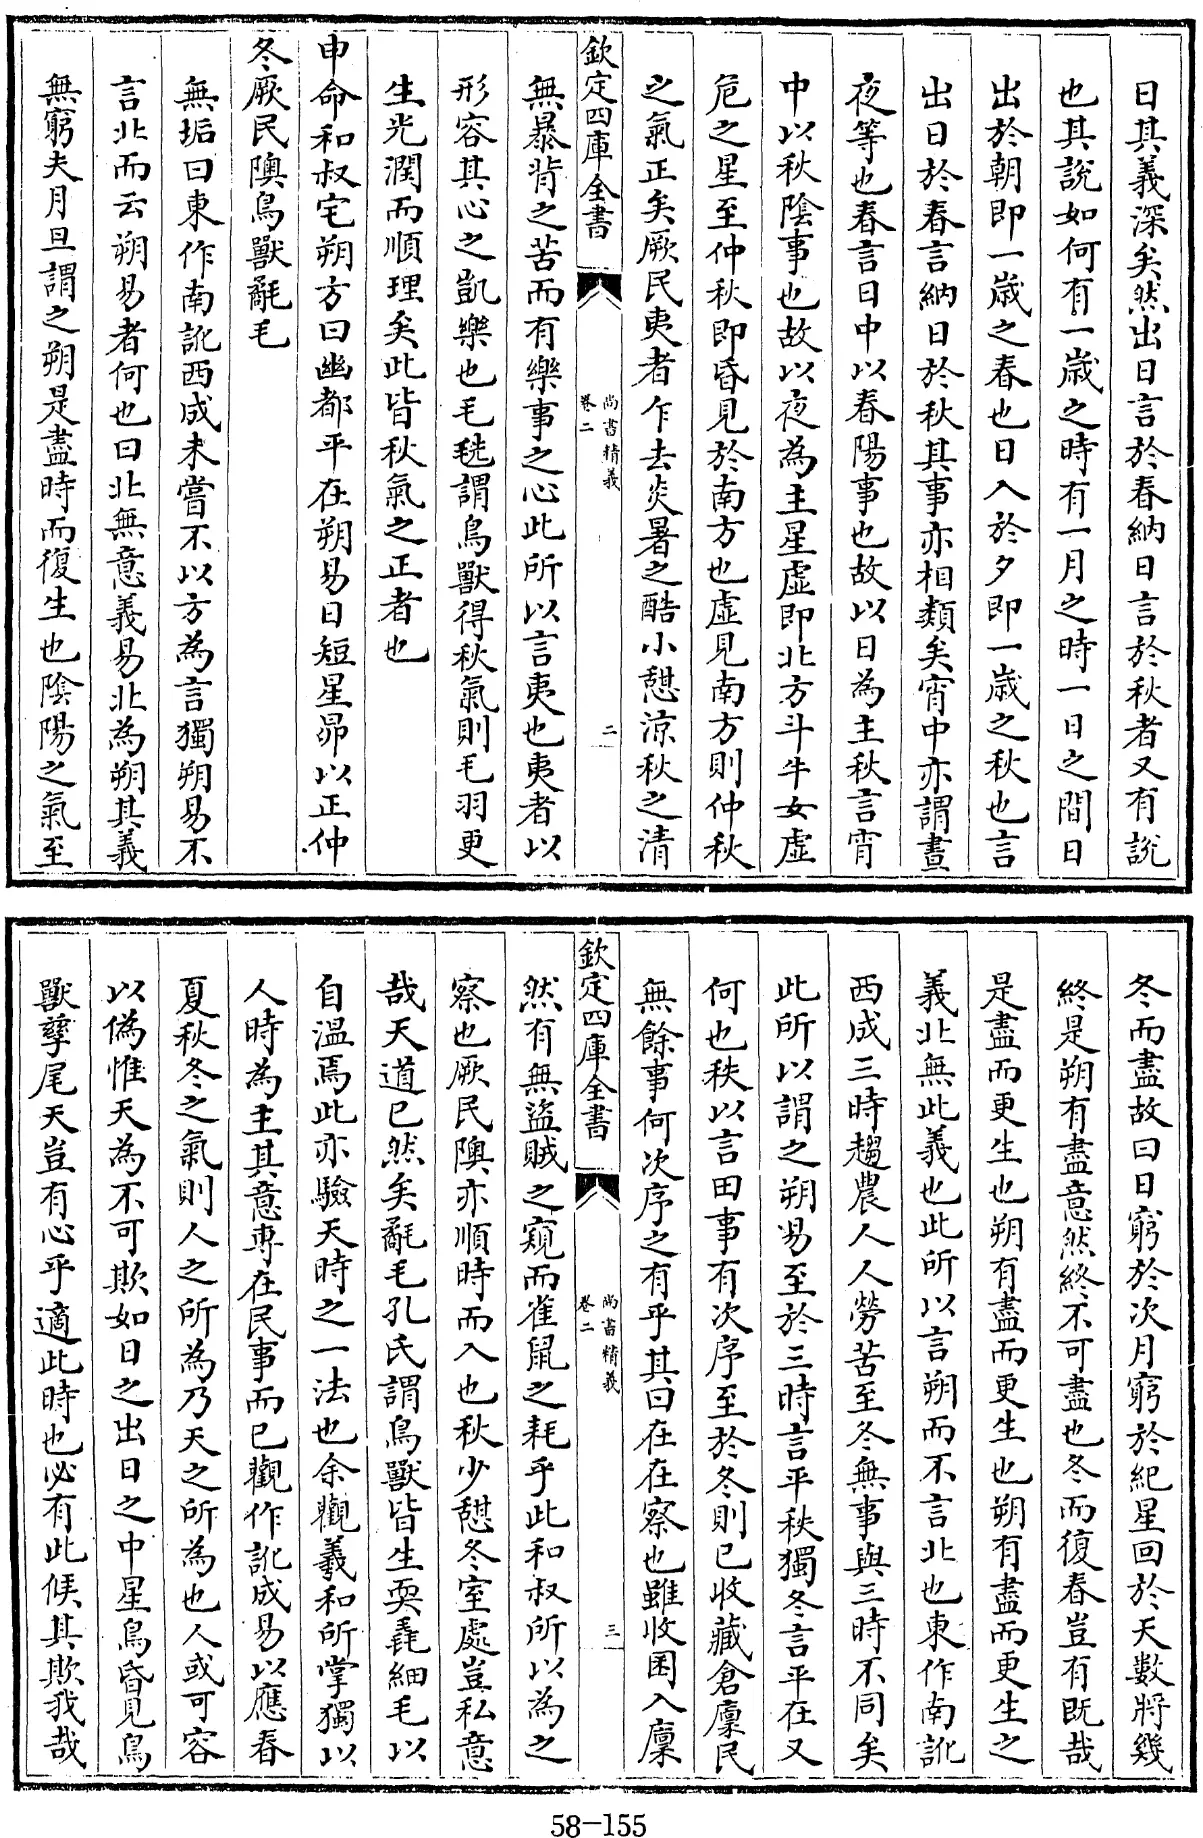 日其義深矣然出日言於春納日言於秋者又有說
也其說如何有一歲之時有一月之時一日之間日
出於朝即一歲之春也日入於夕即一歲之秋也言
出日於春言納日於秋其事亦相類矣宵中亦謂晝
夜等也春言日中以春陽事也故以日為主秋言宵
中以秋陰事也故以夜為主星虛即北方斗牛女虛
危之星至仲秋即昏見於南方也虛見南方則仲秋
之氣正矣厥民夷者乍去炎暑之酷小憇涼秋之清
欽定四庫全書
尚書精義
卷二
二
無暴背之苦而有樂事之心此所以言夷也夷者以
形容其心之凱樂也毛毨謂鳥獸得秋氣則毛羽更
生光潤而順理矣此皆秋氣之正者也
申命和叔宅朔方曰幽都平在朔易日短星昴以正仲
冬厥民隩鳥獸氄毛
無垢曰東作南訛西成未嘗不以方為言獨朔易不
言北而云朔易者何也曰北無意義易北為朔其義
無窮夫月旦謂之朔是盡時而復生也陰陽之氣至
冬而盡故曰日窮於次月窮於紀星回於天數將幾
終是朔有盡意然終不可盡也冬而復春豈有既哉
是盡而更生也朔有盡而更生也朔有盡而更生之
義北無此義也此所以言朔而不言北也東作南訛
西成三時趨農人人勞苦至冬無事與三時不同矣
此所以謂之朔易至於三時言平秩獨冬言平在又
何也秩以言田事有次序至於冬則已收藏倉廩民
無餘事何次序之有乎其曰在在察也雖收囷入廩
欽定四庫全書
尚書精義
卷二
三
然有無盜賊之窺而雀鼠之耗乎此和叔所以為之
察也厥民隩亦順時而入也秋少憇冬室處豈私意
哉天道已然矣氄毛孔氏謂鳥獸皆生耎毳細毛以
自温焉此亦驗天時之一法也余觀羲和所掌獨以
人時為主其意專在民事而已觀作訛成易以應春
夏秋冬之氣則人之所為乃天之所為也人或可容
以偽惟天為不可欺如日之出日之中星鳥昏見鳥
獸孳尾天豈有心乎適此時也必有此候其欺我哉
58-155